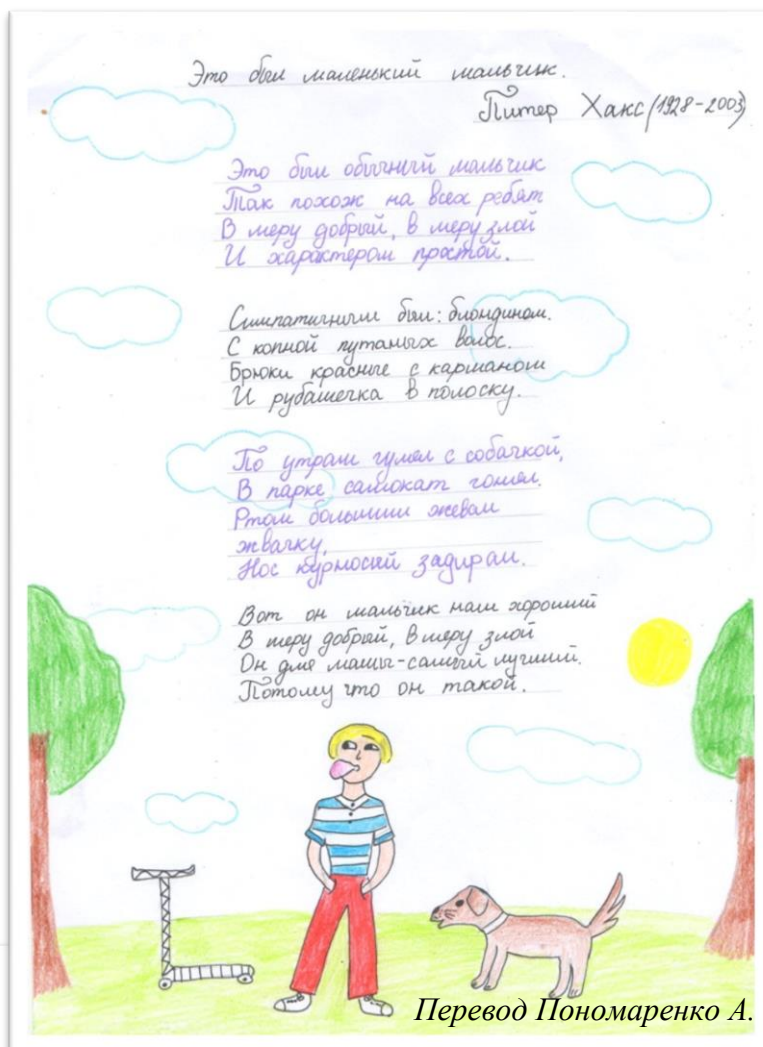 Это был маленький мальчик.
Питер Хакс (1928-2003)
Это был обычный мальчик
Так похож на всех ребят
В меру добрый, в меру злой
И характером простой.
Симпатичным был: блондином.
С копной путаных волос.
Брюки красные с карманом
И рубашечка в полоску.
По утрам гулял с собачкой,
В парке самокат гонял.
Ртом большим жевал
жвачку,
Нос курносый задирал.
Вот он мальчик наш хороший
В меру добрый, в меру злой
Он для мамы-самый лучший.
Потому что он такой.
Перевод Пономаренко А.